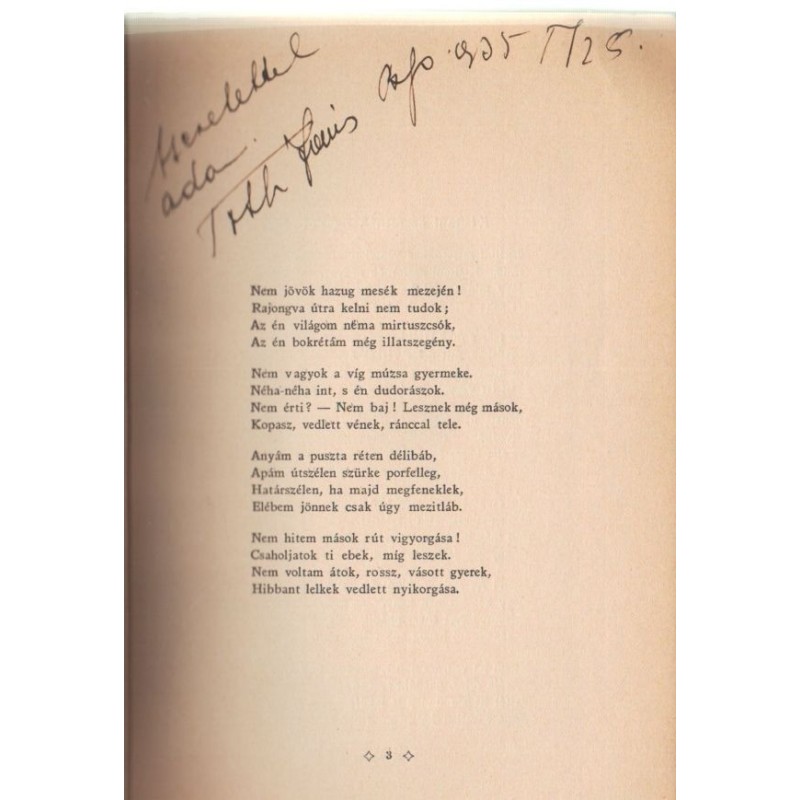 szeretettel
ada
Tóth János
935 V/25.
Nem jövök hazug mesék mezején !
Rajongva útra kelni nem tudok ;
Az én világom néma mirtuszcsók,
Az én bokrétám még illatszegény.
Nem vagyok a víg múzsa gyermeke.
Néha-néha int, s én dudorászok.
Nem érti? — Nem baj ! Lesznek még mások,
Kopasz, vedlett vének, ránccal tele.
Anyám a puszta réten délibáb,
Apám útszélen szürke porfelleg,
Határszélen, ha majd megfeneklek,
Elébem jönnek csak úgy mezitláb.
Nem hitem mások rút vigyorgása !
Csaholjatok ti ebek, míg leszek.
Nem voltam átok, rossz, vásott gyerek,
Hibbant lelkek vedlett nyikorgása.
3